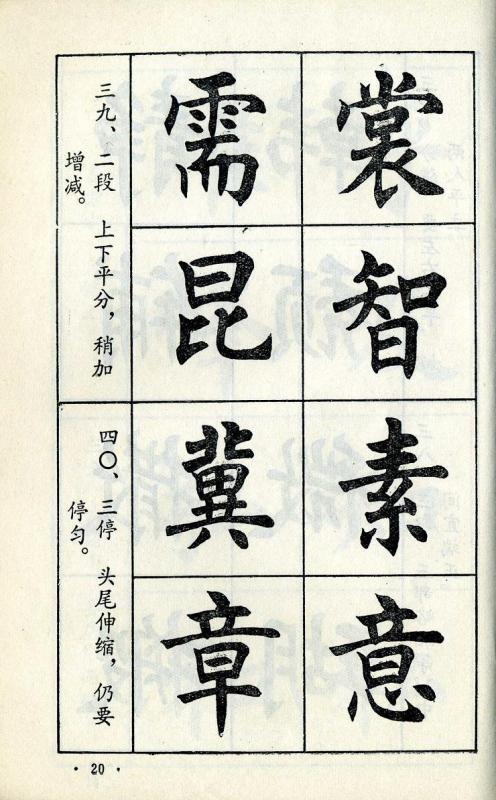 裳智素意
需昆冀章
三九、二段 上下平分，稍加
增减。
四〇、三停 头尾伸缩，仍要
停匀。
· 20 ·